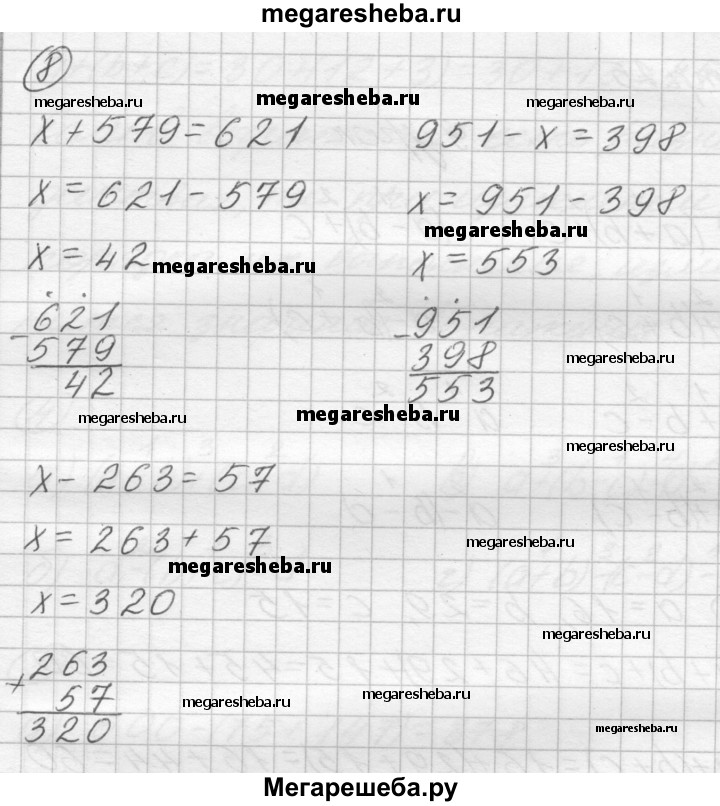 megaresheba.ru
8
megaresheba.ru megaresheba.ru megaresheba.ru
x + 579 = 621 951 - x = 398
x = 621 - 579 x = 951 - 398
megaresheba.ru
x = 42 megaresheba.ru x = 553
621 951
- 579 - 398 megaresheba.ru
42 553
megaresheba.ru megaresheba.ru
megaresheba.ru
x - 263 = 57
x = 263 + 57 megaresheba.ru
megaresheba.ru
x = 320
megaresheba.ru
263
+ 57 megaresheba.ru megaresheba.ru
320 megaresheba.ru
Мегарешеба.ру